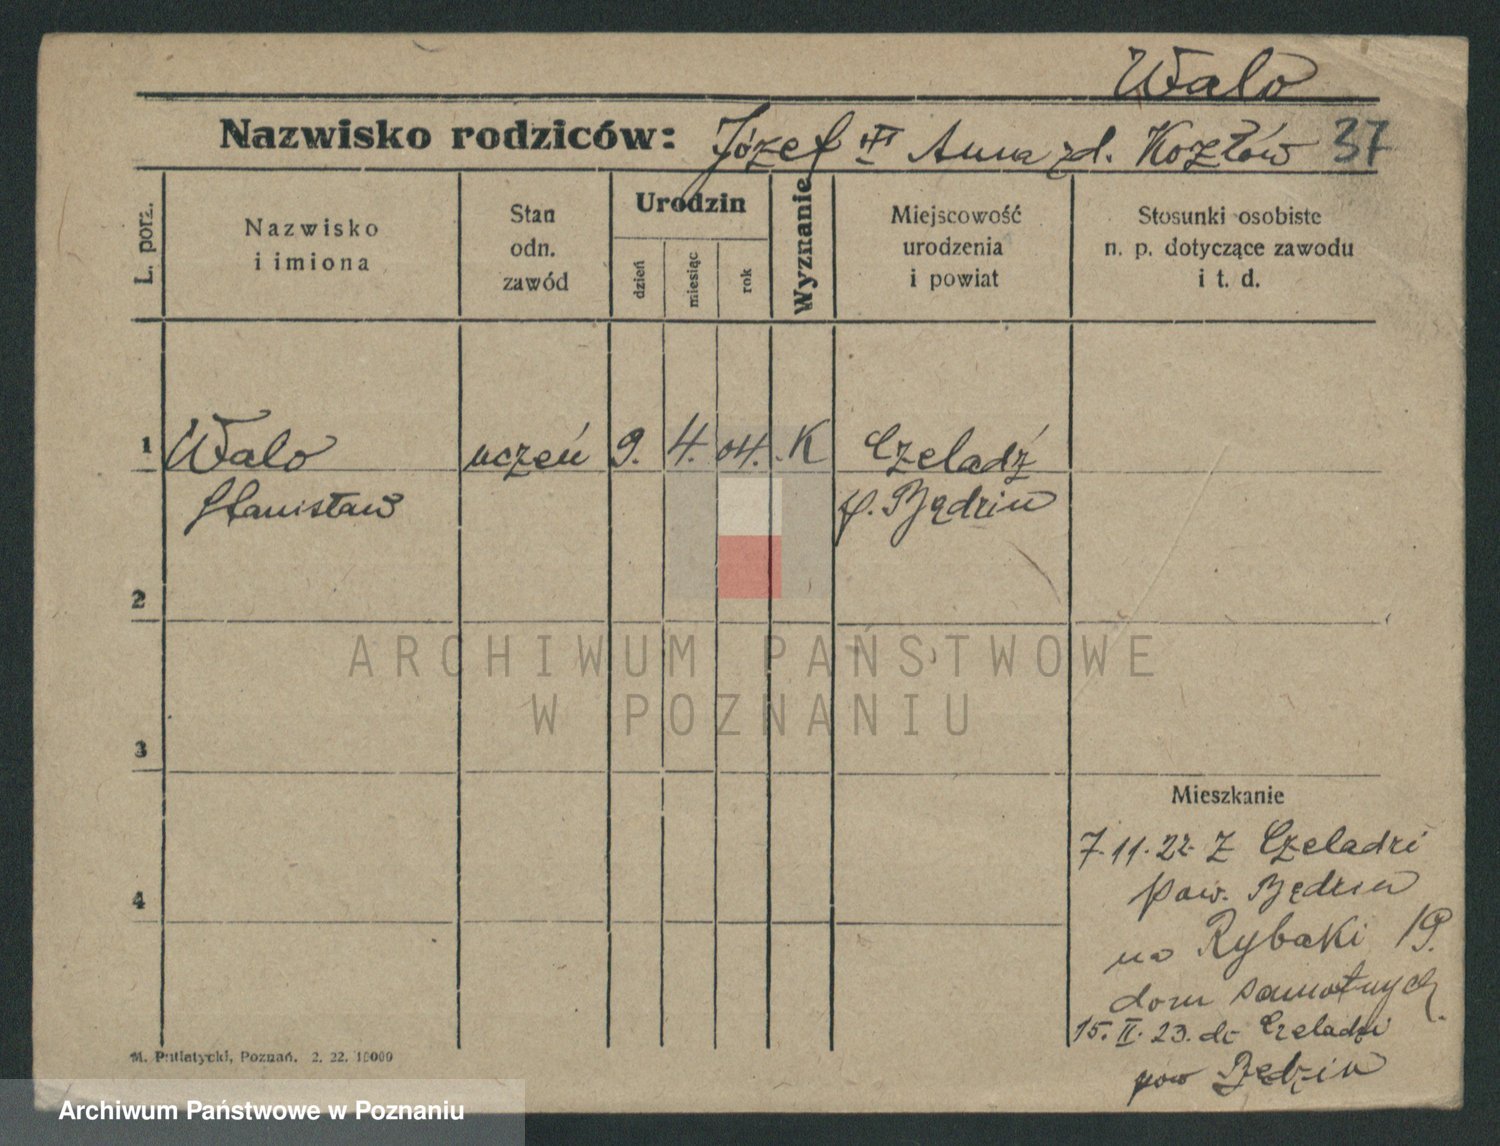 Walo
Nazwisko rodziców: Józef i Anna zd. Kozłów 37
L. porz.
Nazwisko
i imiona
Stan
odn.
zawód
Urodzin
dzień
miesiąc
rok
Wyznanie
Miejscowość
urodzenia
i powiat
Stosunki osobiste
n. p. dotyczące zawodu
i t. d.
1 Walo uczeń 9. 4. 04. K Czeladź
Stanisław p. Będzin
2
3
4
Mieszkanie
7.11.22 z Czeladzi
pow. Będzin
na Rybaki 19.
dom samotnych.
15.II.23. do Czeladzi
pow Będzin
M. Putiatycki, Poznań. 2. 22. 10000
ARCHIWUM PAŃSTWOWE
W POZNANIU
Archiwum Państwowe w Poznaniu